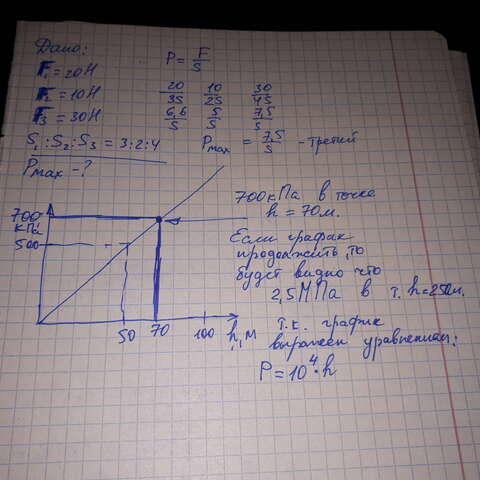 Дано:
F₁ = 20Н
F₂ = 10Н
F₃ = 30Н
S₁ : S₂ : S₃ = 3:2:4
Pmax - ?
P = F/S
20/3S 10/2S 30/4S
6,6/S 5/S 7,5/S
Pmax = 7,5/S - третий
700
кПа
500
50 70 100 h, м
700кПа в точке
h = 70м.
Если график
продолжить, то
будет видно что
2,5МПа в т. h=250м.
т.к. график
выражен уравнением:
P = 10⁴·h